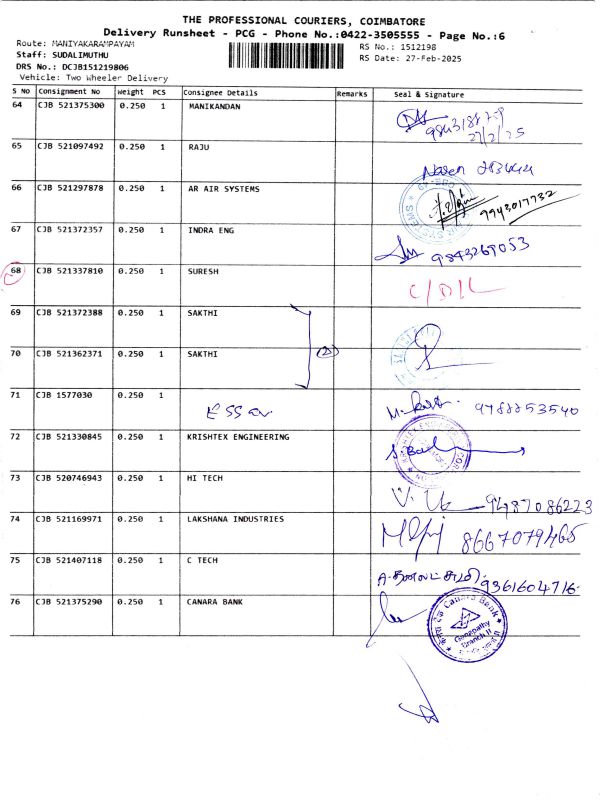 THE PROFESSIONAL COURIERS, COIMBATORE
Delivery Runsheet - PCG - Phone No.:0422-3505555 - Page No.:6
Route: MANIYAKARAMPAYAM
RS No.: 1512198
Staff: SUDALIMUTHU
RS Date: 27-Feb-2025
DRS No.: DCJB151219806
Vehicle: Two Wheeler Delivery
S No Consignment No Weight PCS Consignee Details Remarks Seal & Signature
64 CJB 521375300 0.250 1 MANIKANDAN
27/2/25
65 CJB 521097492 0.250 1 RAJU
66 CJB 521297878 0.250 1 AR AIR SYSTEMS
9943017732
67 CJB 521372357 0.250 1 INDRA ENG
9843269053
68 CJB 521337810 0.250 1 SURESH
C/D/L
69 CJB 521372388 0.250 1 SAKTHI
70 CJB 521362371 0.250 1 SAKTHI
(2)
71 CJB 1577030 0.250 1
9788853540
72 CJB 521330845 0.250 1 KRISHTEX ENGINEERING
73 CJB 520746943 0.250 1 HI TECH
9487086223
74 CJB 521169971 0.250 1 LAKSHANA INDUSTRIES
8667079465
75 CJB 521407118 0.250 1 C TECH
9361604716
76 CJB 521375290 0.250 1 CANARA BANK
Canara Bank
Ganapathy
Branch II